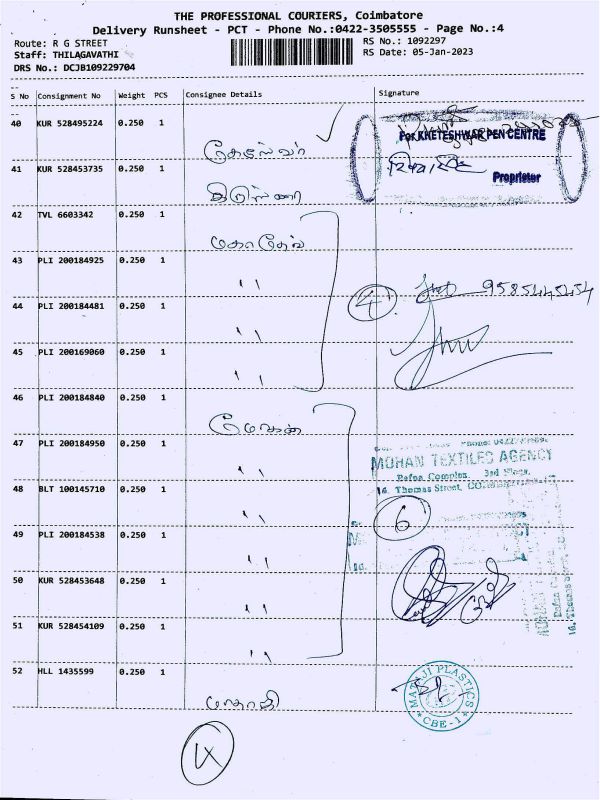 THE PROFESSIONAL COURIERS, Coimbatore
Delivery Runsheet - PCT - Phone No.:0422-3505555 - Page No.:4
Route: R G STREET
RS No.: 1092297
Staff: THILAGAVATHI
RS Date: 05-Jan-2023
DRS No.: DCJB109229704
S No Consignment No Weight PCS Consignee Details Signature
40 KUR 528495224 0.250 1
For KHETESHWAR PEN CENTRE
41 KUR 528453735 0.250 1
Proprietor
42 TVL 6603342 0.250 1 மகாதேவ்
43 PLI 200184925 0.250 1 ''
4 9585445454
44 PLI 200184481 0.250 1 ''
45 PLI 200169060 0.250 1 ''
46 PLI 200184840 0.250 1 மோகன்
47 PLI 200184950 0.250 1 ''
MOHAN TEXTILES AGENCY
Pafna Complex, 3rd Floor,
16, Thomas Street,
48 BLT 100145710 0.250 1 ''
6
49 PLI 200184538 0.250 1 ''
50 KUR 528453648 0.250 1 ''
51 KUR 528454109 0.250 1 ''
52 HLL 1435599 0.250 1 மாதாஜி
MATAJI PLASTICS
* CBE-1 *